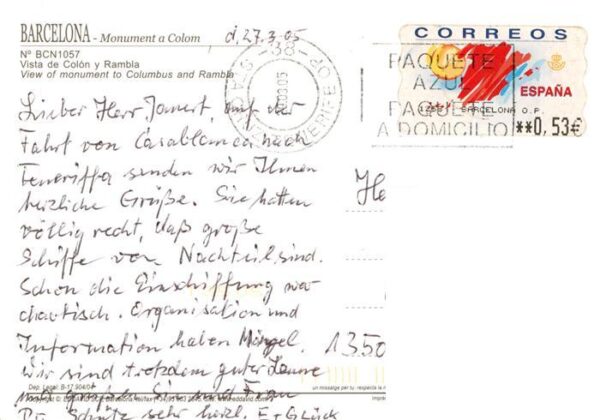 BARCELONA - Monument a Colom
d, 27.3.05
Nº BCN1057
Vista de Colón y Rambla
View of monument to Columbus and Rambla
CORREOS
ESPAÑA
BARCELONA O.P.
**0,53€
PAQUETE
AZUL
PAQUETE
A DOMICILIO
-38-
Lieber Herr auf der
Fahrt von Casablanca nach
Teneriffa senden wir Ihnen
herzliche Grüße. Sie hatten
völlig recht, daß große
Schiffe von Nachteil sind.
Schon die Einschiffung war
chaotisch. Organisation und
Information haben Mängel.
Wir sind trotzdem guter Laune
und grüßen Sie und Frau
sehr herzl. E + Glück
He
1350
Dep. Legal: B-17.904/04